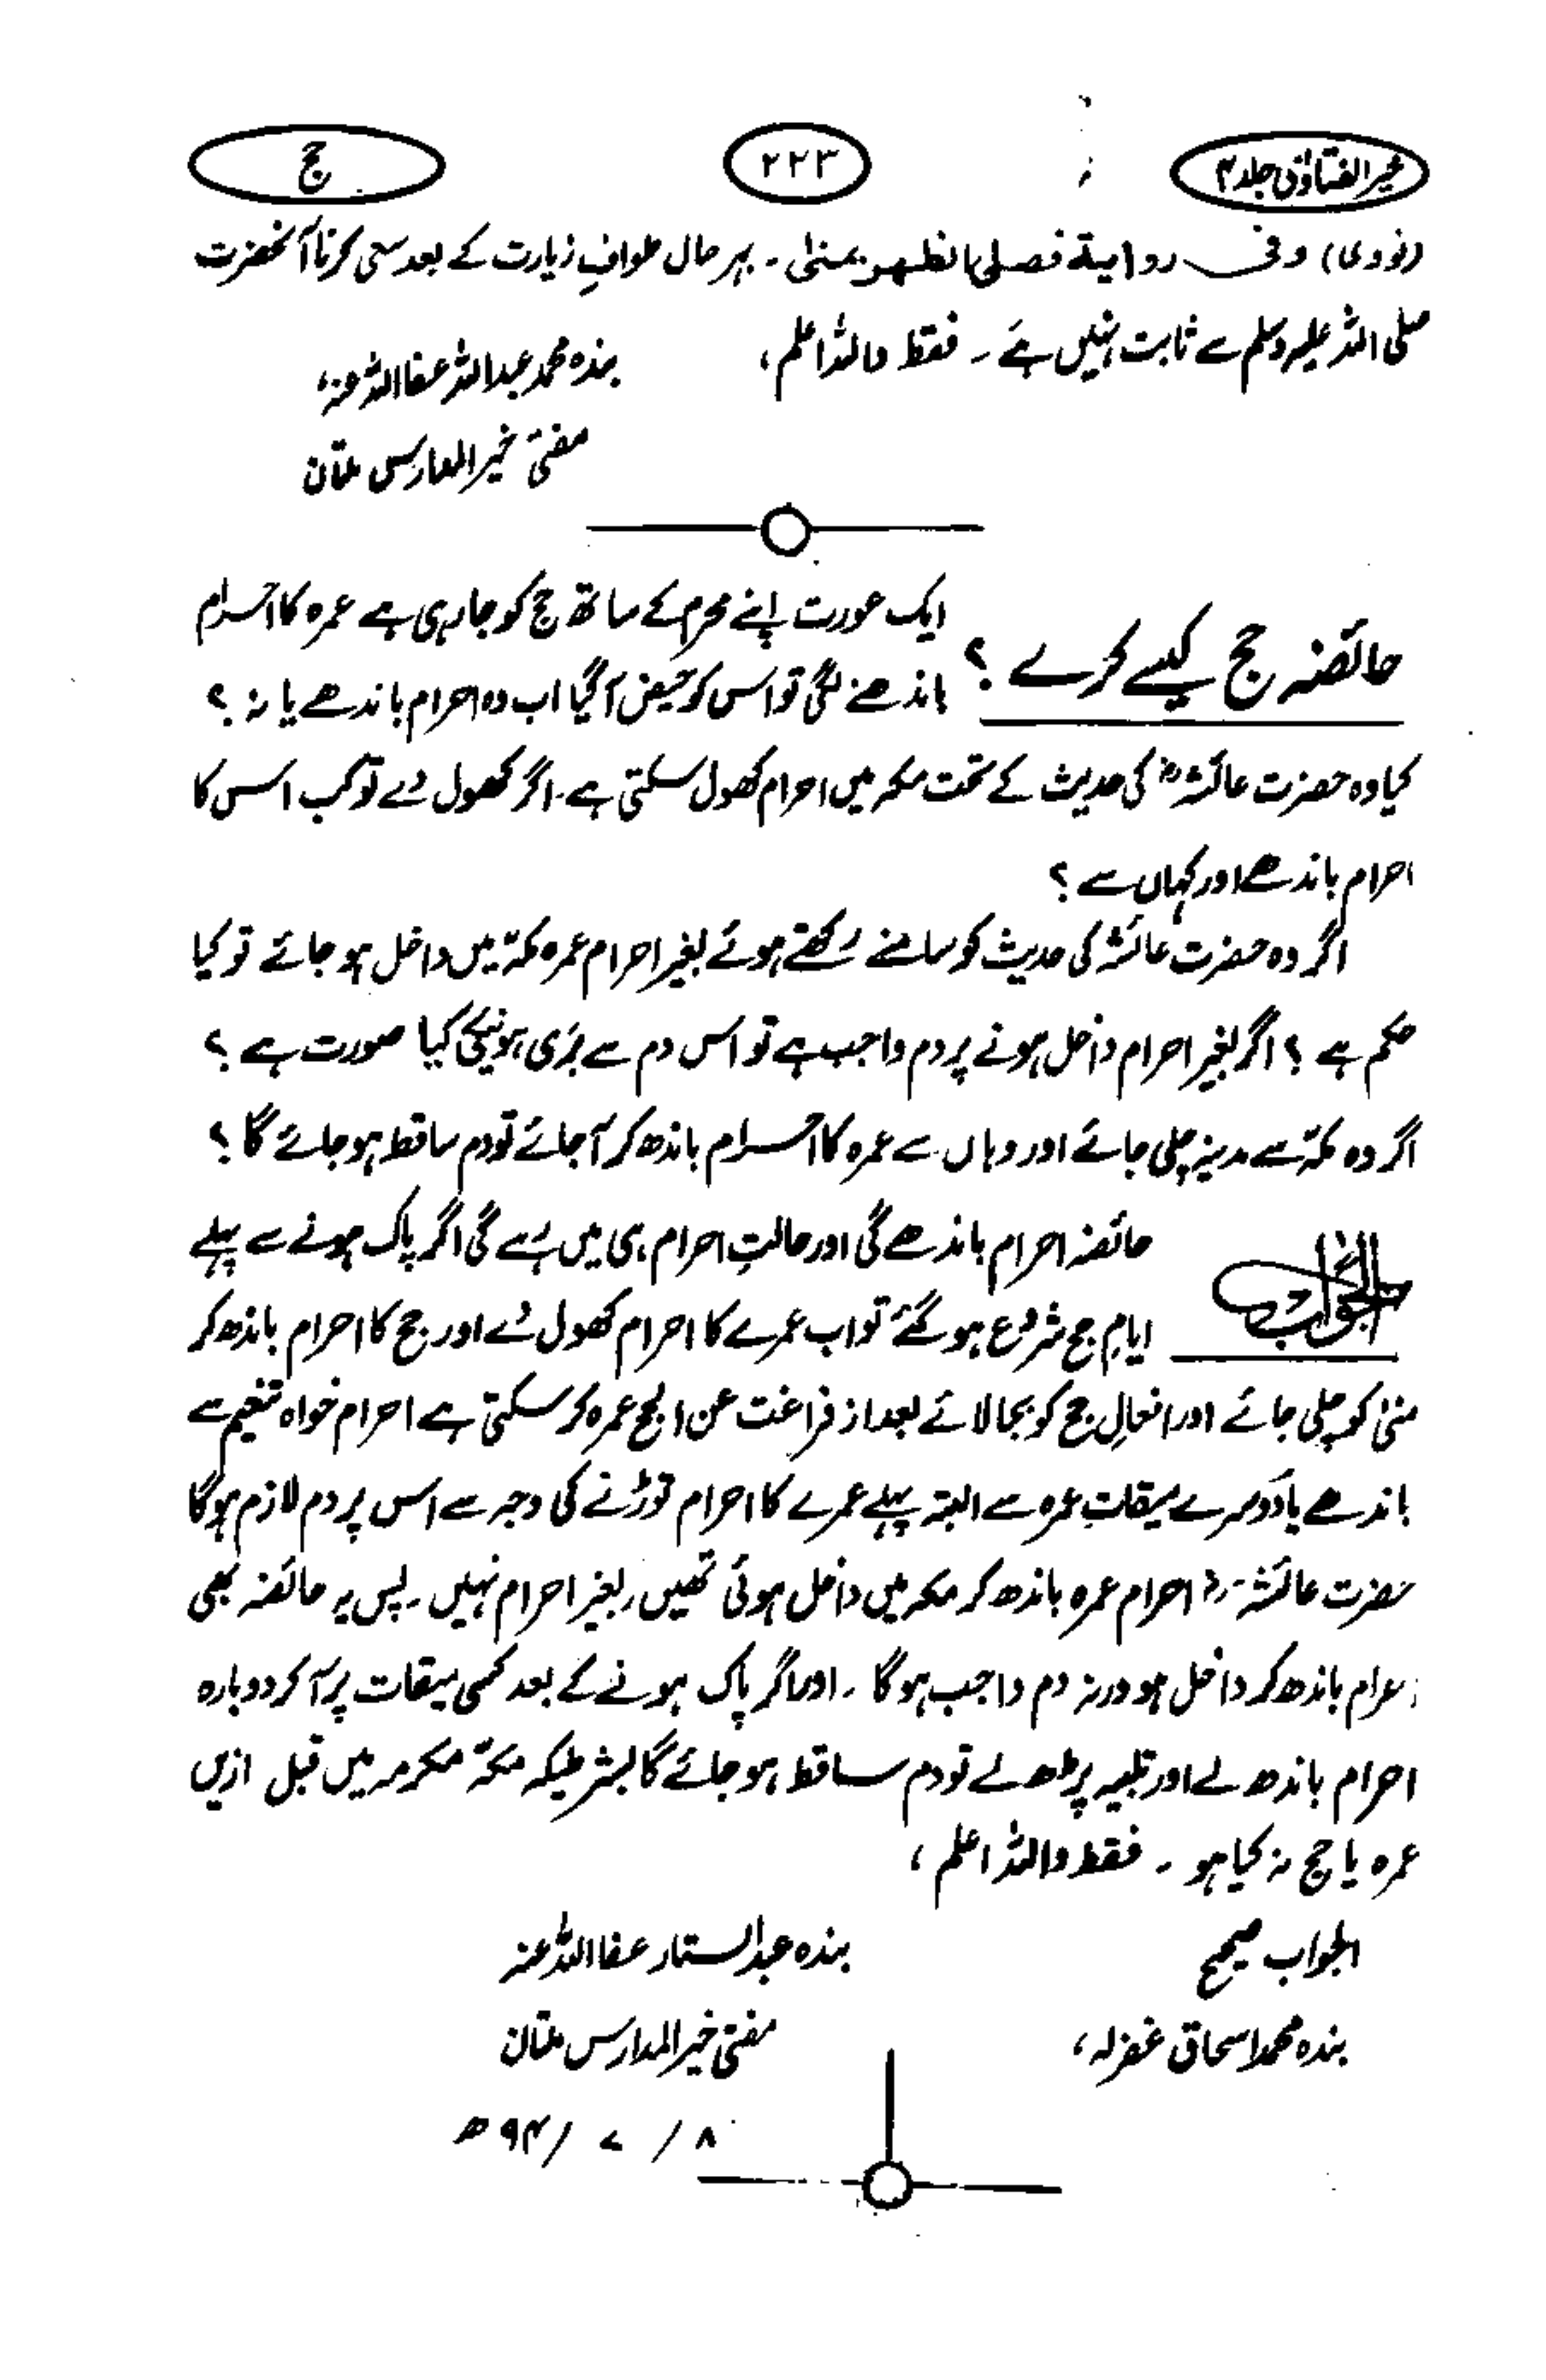 خیر الفتاوٰی جلد ۴
۲۲۳
حج
(نووی) وفی روایة فصلی الظهر بمنٰی ۔ بہر حال طوافِ زیارت کے بعد سعی کرنا آنحضرت
صلی اللہ علیہ وسلم سے ثابت نہیں ہے ۔ فقط واللہ اعلم،
بندہ محمد عبداللہ عفا اللہ عنہ،
مفتیٔ خیر المدارس ملتان
حائضہ حج کیسے کرے ؟
ایک عورت اپنے محرم کے ساتھ حج کو جا رہی ہے عمرہ کا احرام
باندھنے لگی تو اس کو حیض آ گیا اب وہ احرام باندھے یا نہ ؟
کیا وہ حضرت عائشہؓ کی حدیث کے تحت مکہ میں احرام کھول سکتی ہے ۔ اگر کھول دے تو کب اس کا
احرام باندھے اور کہاں سے ؟
اگر وہ حضرت عائشہؓ کی حدیث کو سامنے رکھتے ہوئے بغیر احرام عمرہ مکہ میں داخل ہو جائے تو کیا
حکم ہے ؟ اگر بغیر احرام داخل ہونے پر دم واجب ہے تو اس دم سے بری ہونیکی کیا صورت ہے ؟
اگر وہ مکہ سے مدینہ چلی جائے اور وہاں سے عمرہ کا احرام باندھ کر آ جائے تو دم ساقط ہو جائے گا ؟
الجواب
حائضہ احرام باندھے گی اور حالتِ احرام ہی میں رہے گی اگر پاک ہونے سے پہلے
ایامِ حج شروع ہو گئے تو اب عمرے کا احرام کھول دے اور حج کا احرام باندھ کر
منٰی کو چلی جائے اور افعالِ حج کو بجا لائے بعد از فراغت عن الحج عمرہ کر سکتی ہے احرام خواہ تنعیم سے
باندھے یا دوسرے میقاتِ عمرہ سے البتہ پہلے عمرے کا احرام توڑنے کی وجہ سے اس پر دم لازم ہو گا
حضرت عائشہؓ احرام عمرہ باندھ کر مکہ میں داخل ہوئی تھیں بغیر احرام نہیں ۔ پس یہ حائضہ بھی
احرام باندھ کر داخل ہو ورنہ دم واجب ہو گا ۔ اور اگر پاک ہونے کے بعد کسی میقات پر آ کر دوبارہ
احرام باندھ لے اور تلبیہ پڑھ لے تو دم ساقط ہو جائے گا بشرطیکہ مکہ مکرمہ میں قبل ازیں
عمرہ یا حج نہ کیا ہو ۔ فقط واللہ اعلم ،
الجواب صحیح
بندہ عبدالستار عفا اللہ عنہ
بندہ محمد اسحاق غفرلہ ،
مفتی خیر المدارس ملتان
۸ / ۷ / ۹۴ ھ